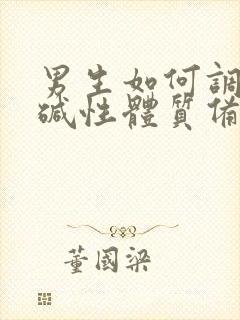 男生如何調
碱性體質備
董國梁